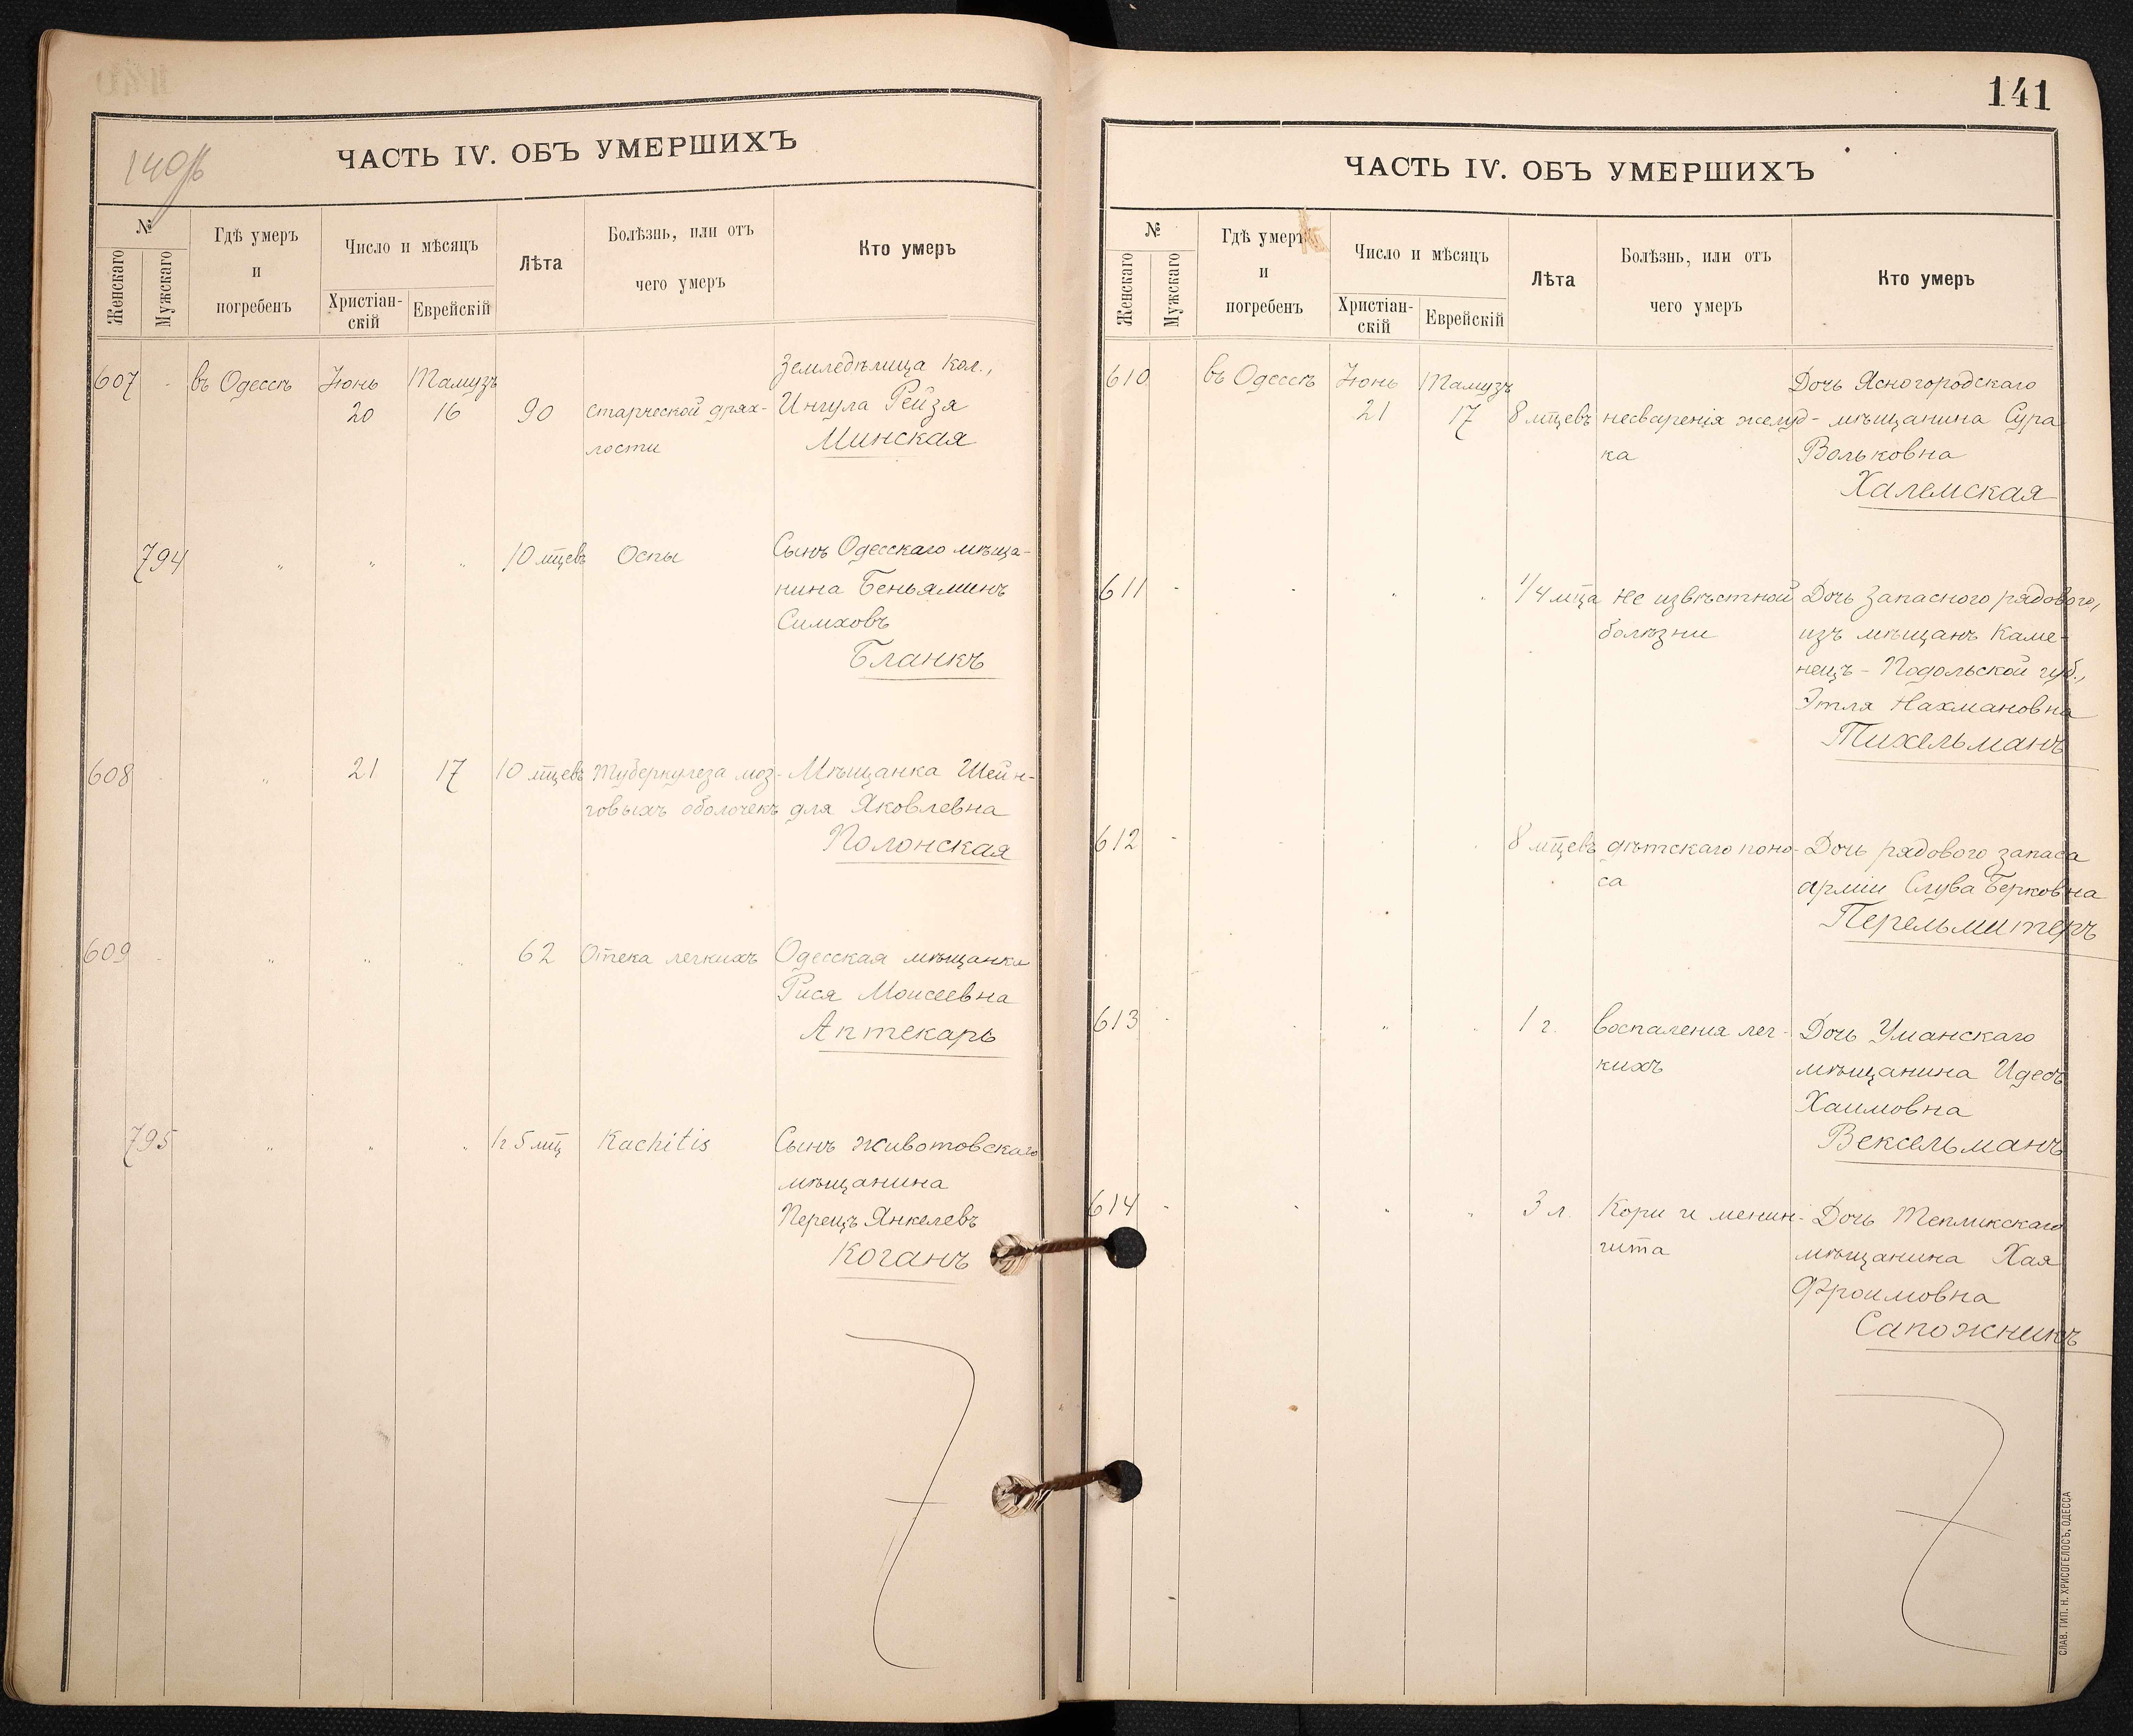 140 об
ЧАСТЬ IV. ОБЪ УМЕРШИХЪ
№
Женскаго
Мужскаго
Гдѣ умеръ
и
погребенъ
Число и мѣсяцъ
Христіан-
скій
Еврейскій
Лѣта
Болѣзнь, или отъ
чего умеръ
Кто умеръ
607 - въ Одессѣ Іюнь Тамузъ Земледѣлица кол.,
20 16 90 старческой дрях- Ингула Рейзя
лости Минская
794 " " " 10 мцевъ Оспы Сынъ Одесскаго мѣща-
нина Беньяминъ
Симховъ
Бланкъ
608 - " 21 17 10 мцевъ туберкулеза моз- Мѣщанка Шейн-
говыхъ оболочекъ для Яковлевна
Полонская
609 - " " " 62 Отека легкихъ Одесская мѣщанка
Рися Моисеевна
Аптекарь
795 " " " 1г 5 мц Rachitis Сынъ Животовскаго
мѣщанина
Перецъ Янкелевъ
Коганъ
141
ЧАСТЬ IV. ОБЪ УМЕРШИХЪ
№
Женскаго
Мужскаго
Гдѣ умеръ
и
погребенъ
Число и мѣсяцъ
Христіан-
скій
Еврейскій
Лѣта
Болѣзнь, или отъ
чего умеръ
Кто умеръ
610 въ Одессѣ Іюнь Тамузъ Дочь Ясногородскаго
21 17 8 мцевъ несваренія желуд- мѣщанина Сура
ка Вольковна
Халемская
611 - " " " 1/4 мца не извѣстной Дочь запасного рядового,
болѣзни изъ мѣщанъ Каме-
нецъ-Подольской губ.,
Этля Нахмановна
Тихельманъ
612 - " " " 8 мцевъ дѣтскаго поно- Дочь рядового запаса
са арміи Слува Берковна
Перельмитеръ
613 - " " " 1 г. воспаленія лег- Дочь Уманскаго
кихъ мѣщанина Идесъ
Хаимовна
Вексельманъ
614 - " " " 3 л. Кори и менин- Дочь Тепликскаго
гита мѣщанина Хая
Фроимовна
Сапожникъ
СЛАВ. ТИП. Н. ХРИСОГЕЛОСЪ, ОДЕССА